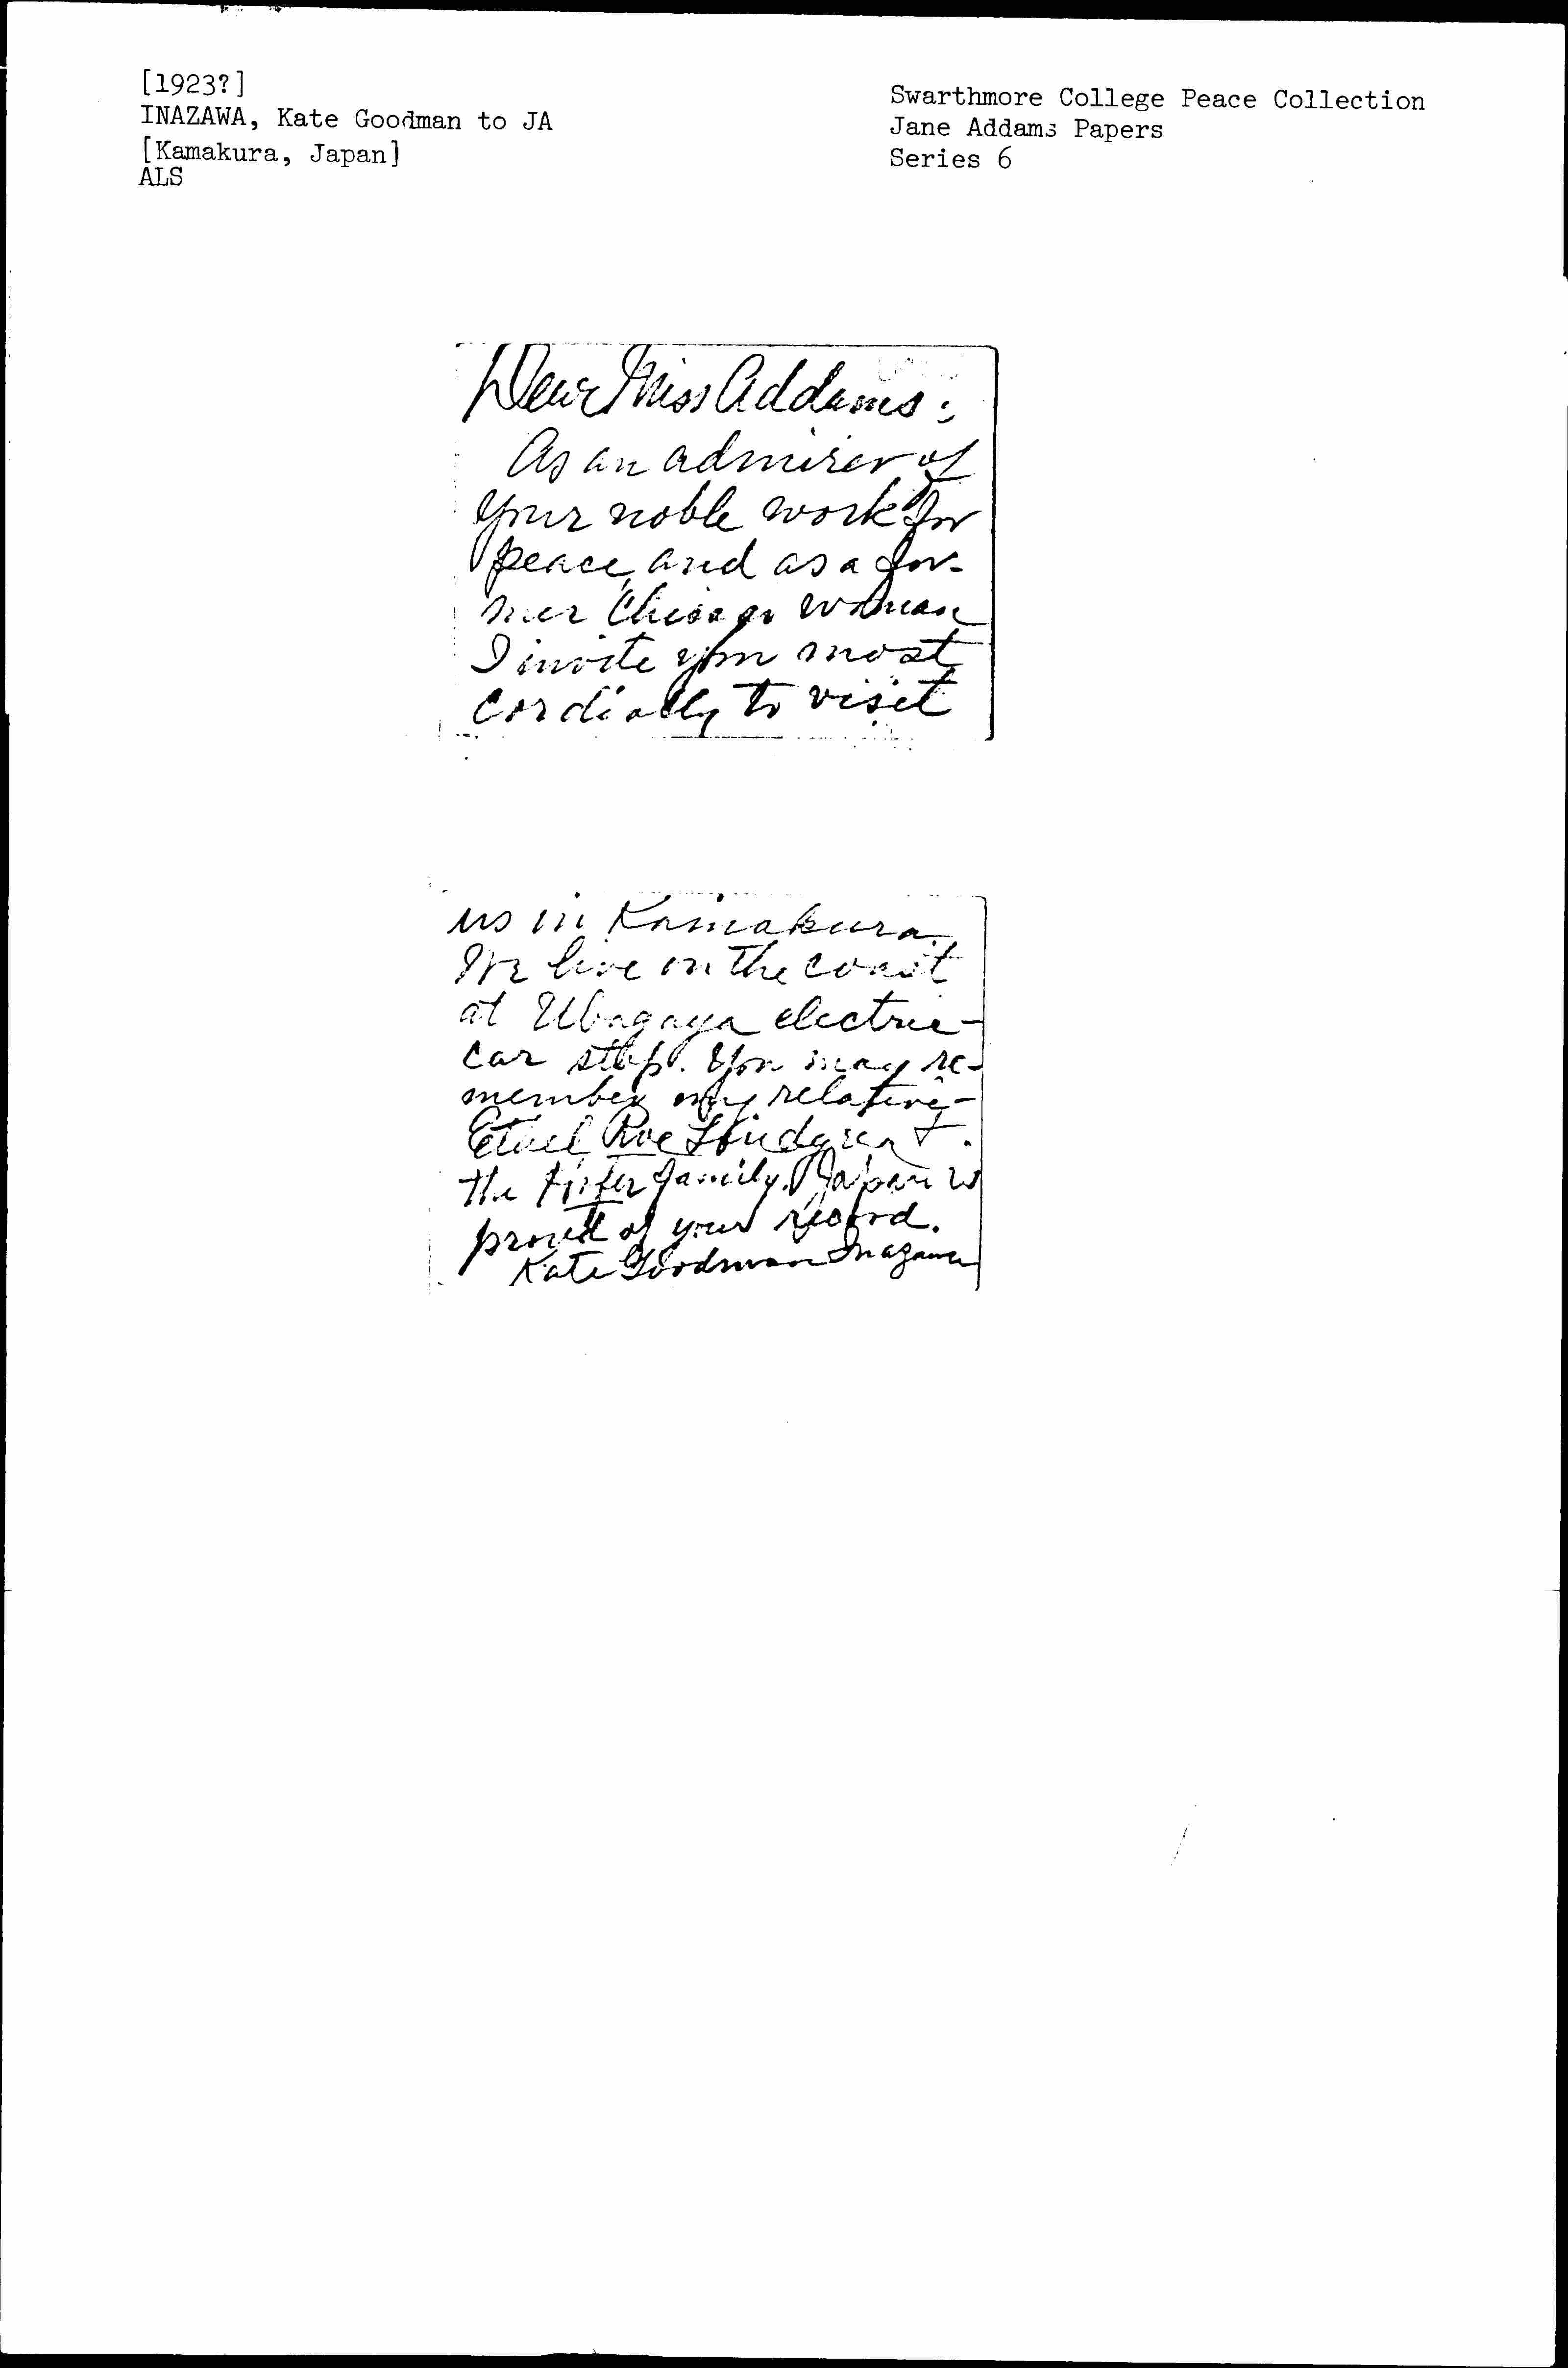 [1923?]
INAZAWA, Kate Goodman to JA
[Kamakura, Japan]
ALS
Swarthmore College Peace Collection
Jane Addams Papers
Series 6
Dear Miss Addams:
As an admirer of
your noble work for
peace, and as a for-
mer Chicago woman
I invite you most
cordially to visit
us in Kamakura.
We live on the coast
at Ubagaya electric-
car stop. You may re-
member my relative-
Ethel Roe Lindgren &
the family. Japan is
proud of your record.
Kate Goodman Inazawa